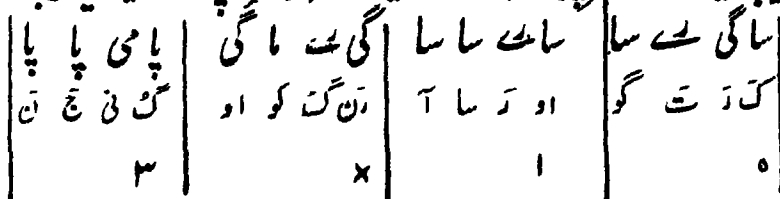 سا گی رے سا | سا رے سا سا | گی رے ما گی | پا می پا پا
کَ رَ تَ گو | او رَ سا آ | رَن گَ کو او | گُ نی جَ نَ
۰ | ۱ | × | ۳